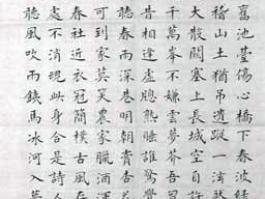 舊池臺傷心橋下春波綠
稽山土猶吊遺蹤一泫
大散關塞上長城空自許
千萬峯不嫌雲夢芥吾
相逢熟睡誰驚
聽春雨深巷明朝賣杏
可到家莫笑農家臘酒渾
春社近衣冠簡樸古風存
處不消魂此身合是詩人
聽風吹雨鐵馬冰河入夢